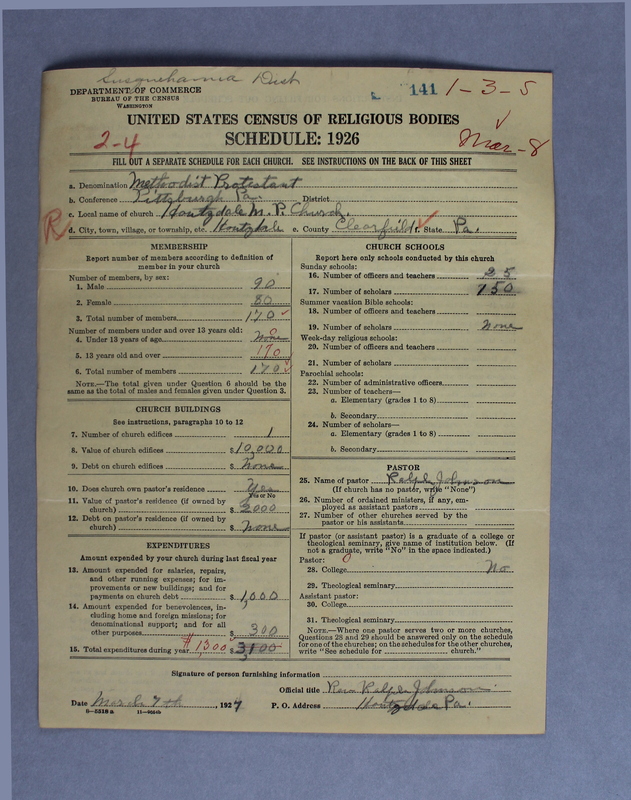 Susquehanna Dist
DEPARTMENT OF COMMERCE
BUREAU OF THE CENSUS
WASHINGTON
141 1-3-5
UNITED STATES CENSUS OF RELIGIOUS BODIES
2-4 SCHEDULE: 1926 Mar-8
FILL OUT A SEPARATE SCHEDULE FOR EACH CHURCH. SEE INSTRUCTIONS ON THE BACK OF THIS SHEET
a. Denomination Methodist Protestant
b. Conference Pittsburgh Pa. District
c. Local name of church Houtzdale M. P. Church.
R d. City, town, village, or township, etc. Houtzdale e. County Clearfield f. State Pa.
MEMBERSHIP
Report number of members according to definition of
member in your church
Number of members, by sex:
1. Male 90
2. Female 80
3. Total number of members 170
Number of members under and over 13 years old:
4. Under 13 years of age None 0
5. 13 years old and over 170
6. Total number of members 170
NOTE.—The total given under Question 6 should be
same as the total of males and females given under Question 3.
CHURCH BUILDINGS
See instructions, paragraphs 10 to 12
7. Number of church edifices 1
8. Value of church edifices $10,000
9. Debt on church edifices $ None
10. Does church own pastor's residence Yes
Yes or No
11. Value of pastor's residence (if owned by
church) $ 2000
12. Debt on pastor's residence (if owned by
church) $ None
EXPENDITURES
Amount expended by your church during last fiscal year
13. Amount expended for salaries, repairs,
and other running expenses; for im-
provements or new buildings; and for
payments on church debt $ 1,000
14. Amount expended for benevolences, in-
cluding home and foreign missions; for
denominational support; and for all
other purposes $ 300
15. Total expenditures during year $1,300 $ 3100
CHURCH SCHOOLS
Report here only schools conducted by this church
Sunday schools:
16. Number of officers and teachers 25
17. Number of scholars 150
Summer vacation Bible schools:
18. Number of officers and teachers
19. Number of scholars None
Week-day religious schools:
20. Number of officers and teachers
21. Number of scholars
Parochial schools:
22. Number of administrative officers
23. Number of teachers—
a. Elementary (grades 1 to 8)
b. Secondary
24. Number of scholars—
a. Elementary (grades 1 to 8)
b. Secondary
PASTOR
25. Name of pastor Ralph Johnson
(If church has no pastor, write "None")
26. Number of ordained ministers, if any, em-
ployed as assistant pastors
27. Number of other churches served by the
pastor or his assistants
If pastor (or assistant pastor) is a graduate of a college or
theological seminary, give name of institution below. (If
not a graduate, write "No" in the space indicated.)
Pastor: 0
28. College No
29. Theological seminary
Assistant pastor:
30. College
31. Theological seminary
NOTE.—Where one pastor serves two or more churches,
Questions 28 and 29 should be answered only on the schedule
for one of the churches; on the schedules for the other churches,
write "See schedule for church."
Signature of person furnishing information
Official title Rev. Ralph Johnson
Date March 7th, 1927 P. O. Address Houtzdale Pa.
8-5518 a